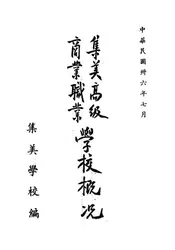 中華民國卅六年七月
集美高級
商業職業
學校概況
集美學校編